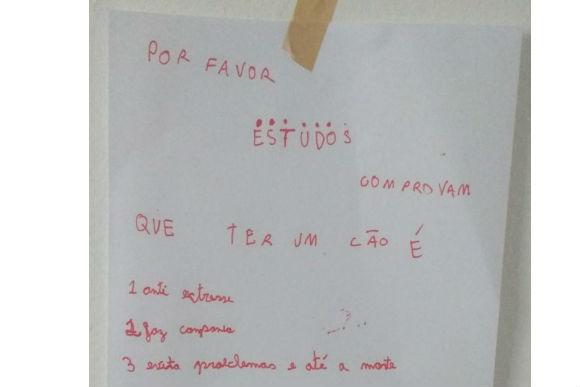 POR FAVOR
ESTUDOS
COMPROVAM
QUE TER UM CÃO É
1 anti extresse
2 faz compania
3 evita problemas e até a morte